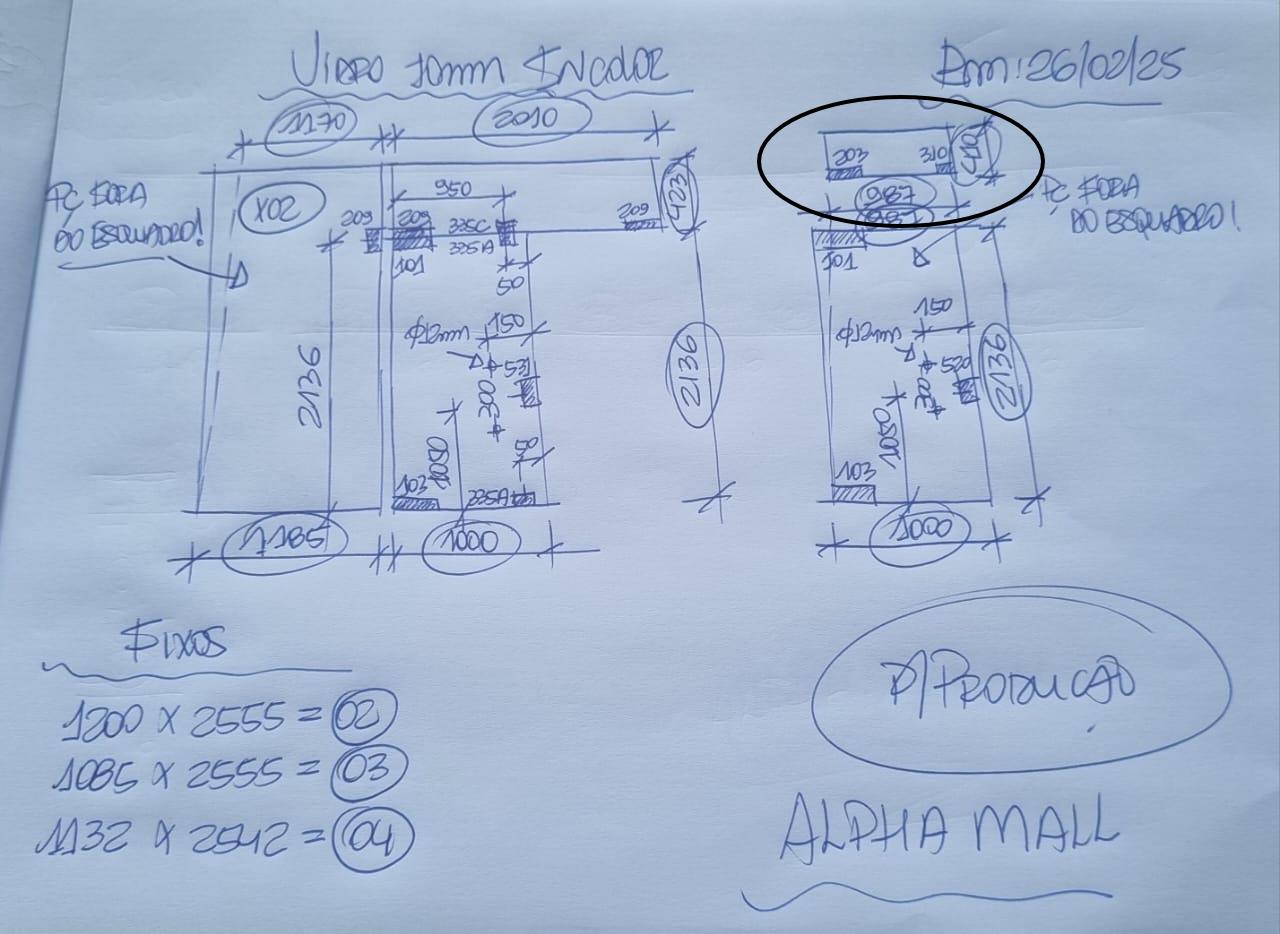 VIDRO 10mm INCOLOR
Em: 26/02/25
1170
2010
PÇ FORA
DO ESQUADRO!
X02
950
423
209
209
335C
209
335A
101
50
2136
150
531
300
1050
50
103
335A
2136
1185
1000
203
310
410
987
987
PÇ FORA
DO ESQUADRO!
101
150
520
300
1050
2136
103
1000
FIXOS
1200 X 2555 = 02
1085 X 2555 = 03
1132 X 2542 = 04
P/PRODUCAO
ALPHA MALL